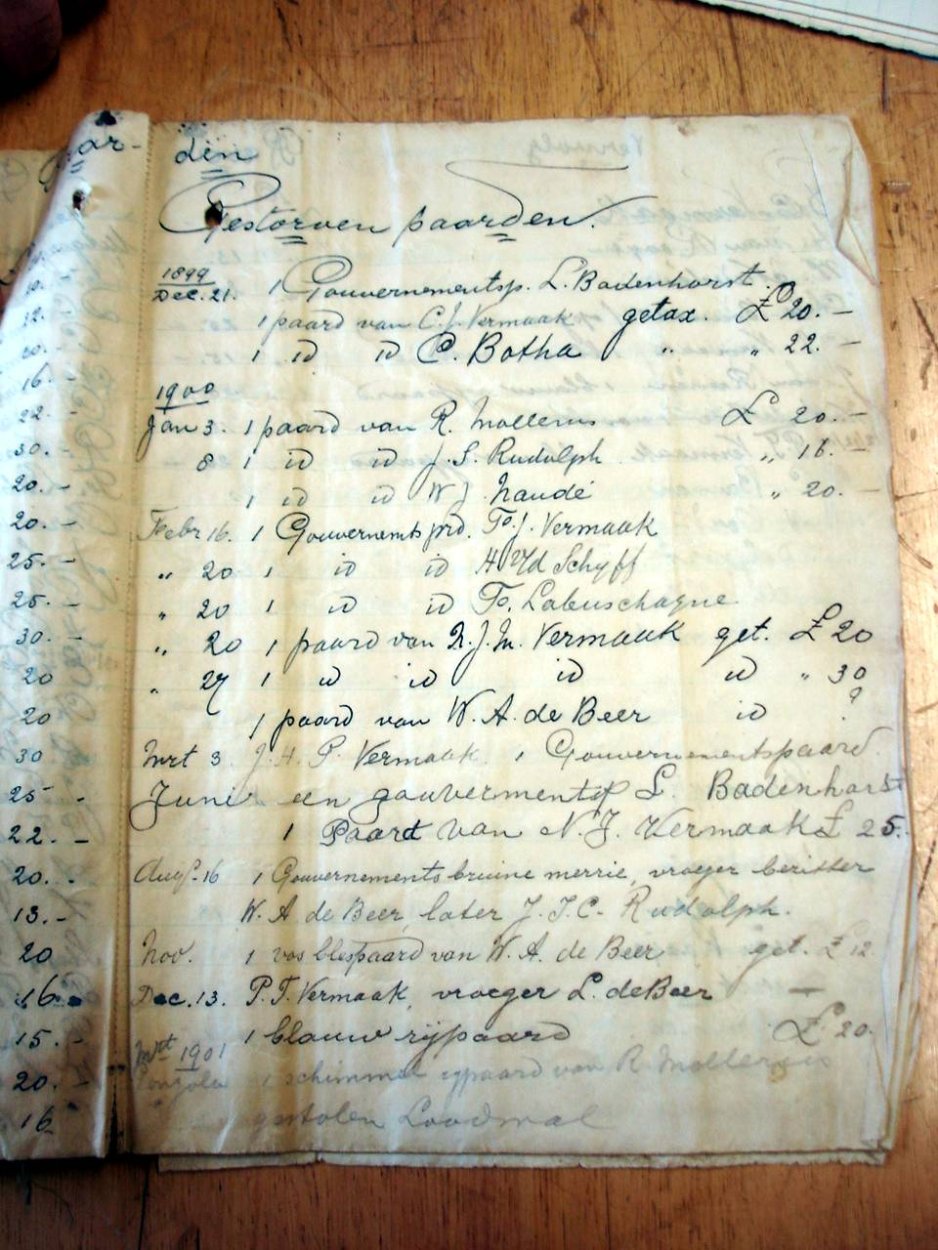 Paar- den
Gestorven paarden.
1899
Dec. 21. 1 Gouvernementsp. L. Badenhorst.
1 paard van C. J. Vermaak getax. £ 20. –
1 id id C. Botha " " 22. –
1900
Jan 3. 1 paard van R. Mollerus £ 20. –
8 1 id id J. S. Rudolph " 16. –
1 id id W. J. Naudé " 20. –
Febr 16. 1 Gouvernemts prd. Ts. J. Vermaak
" 20 1 id id H Vd Schyff
" 20 1 id id Ts. Labuschagne
" 20 1 paard van N. J. M. Vermaak get. £ 20
" 27 1 id id id id " 30
1 paard van W. A. de Beer id ?
Mrt 3 J. H. P. Vermaak 1 Gouvernementspaard
Junie een gouvermentsp L. Badenhorst
1 Paard van N. J. Vermaak £ 25.
Augs. 16 1 Gouvernements bruine merrie, vroeger beritter
W. A de Beer, later J. J. C. Rudolph.
Nov. 1 vos blespaard van W. A. de Beer get. £ 12
Dec. 13. P. T. Vermaak, vroeger L. de Beer –
1 blauw rijpaard £ 20.
Mrt 1901
Pongola 1 schimmel rypaard van R. Mollerus
gestolen Loodwal
22. -
30. -
20. -
20. -
25. -
25. -
30. -
20
20
30
25 -
22. -
20. -
13. -
20
16.
15. -
20. -
16